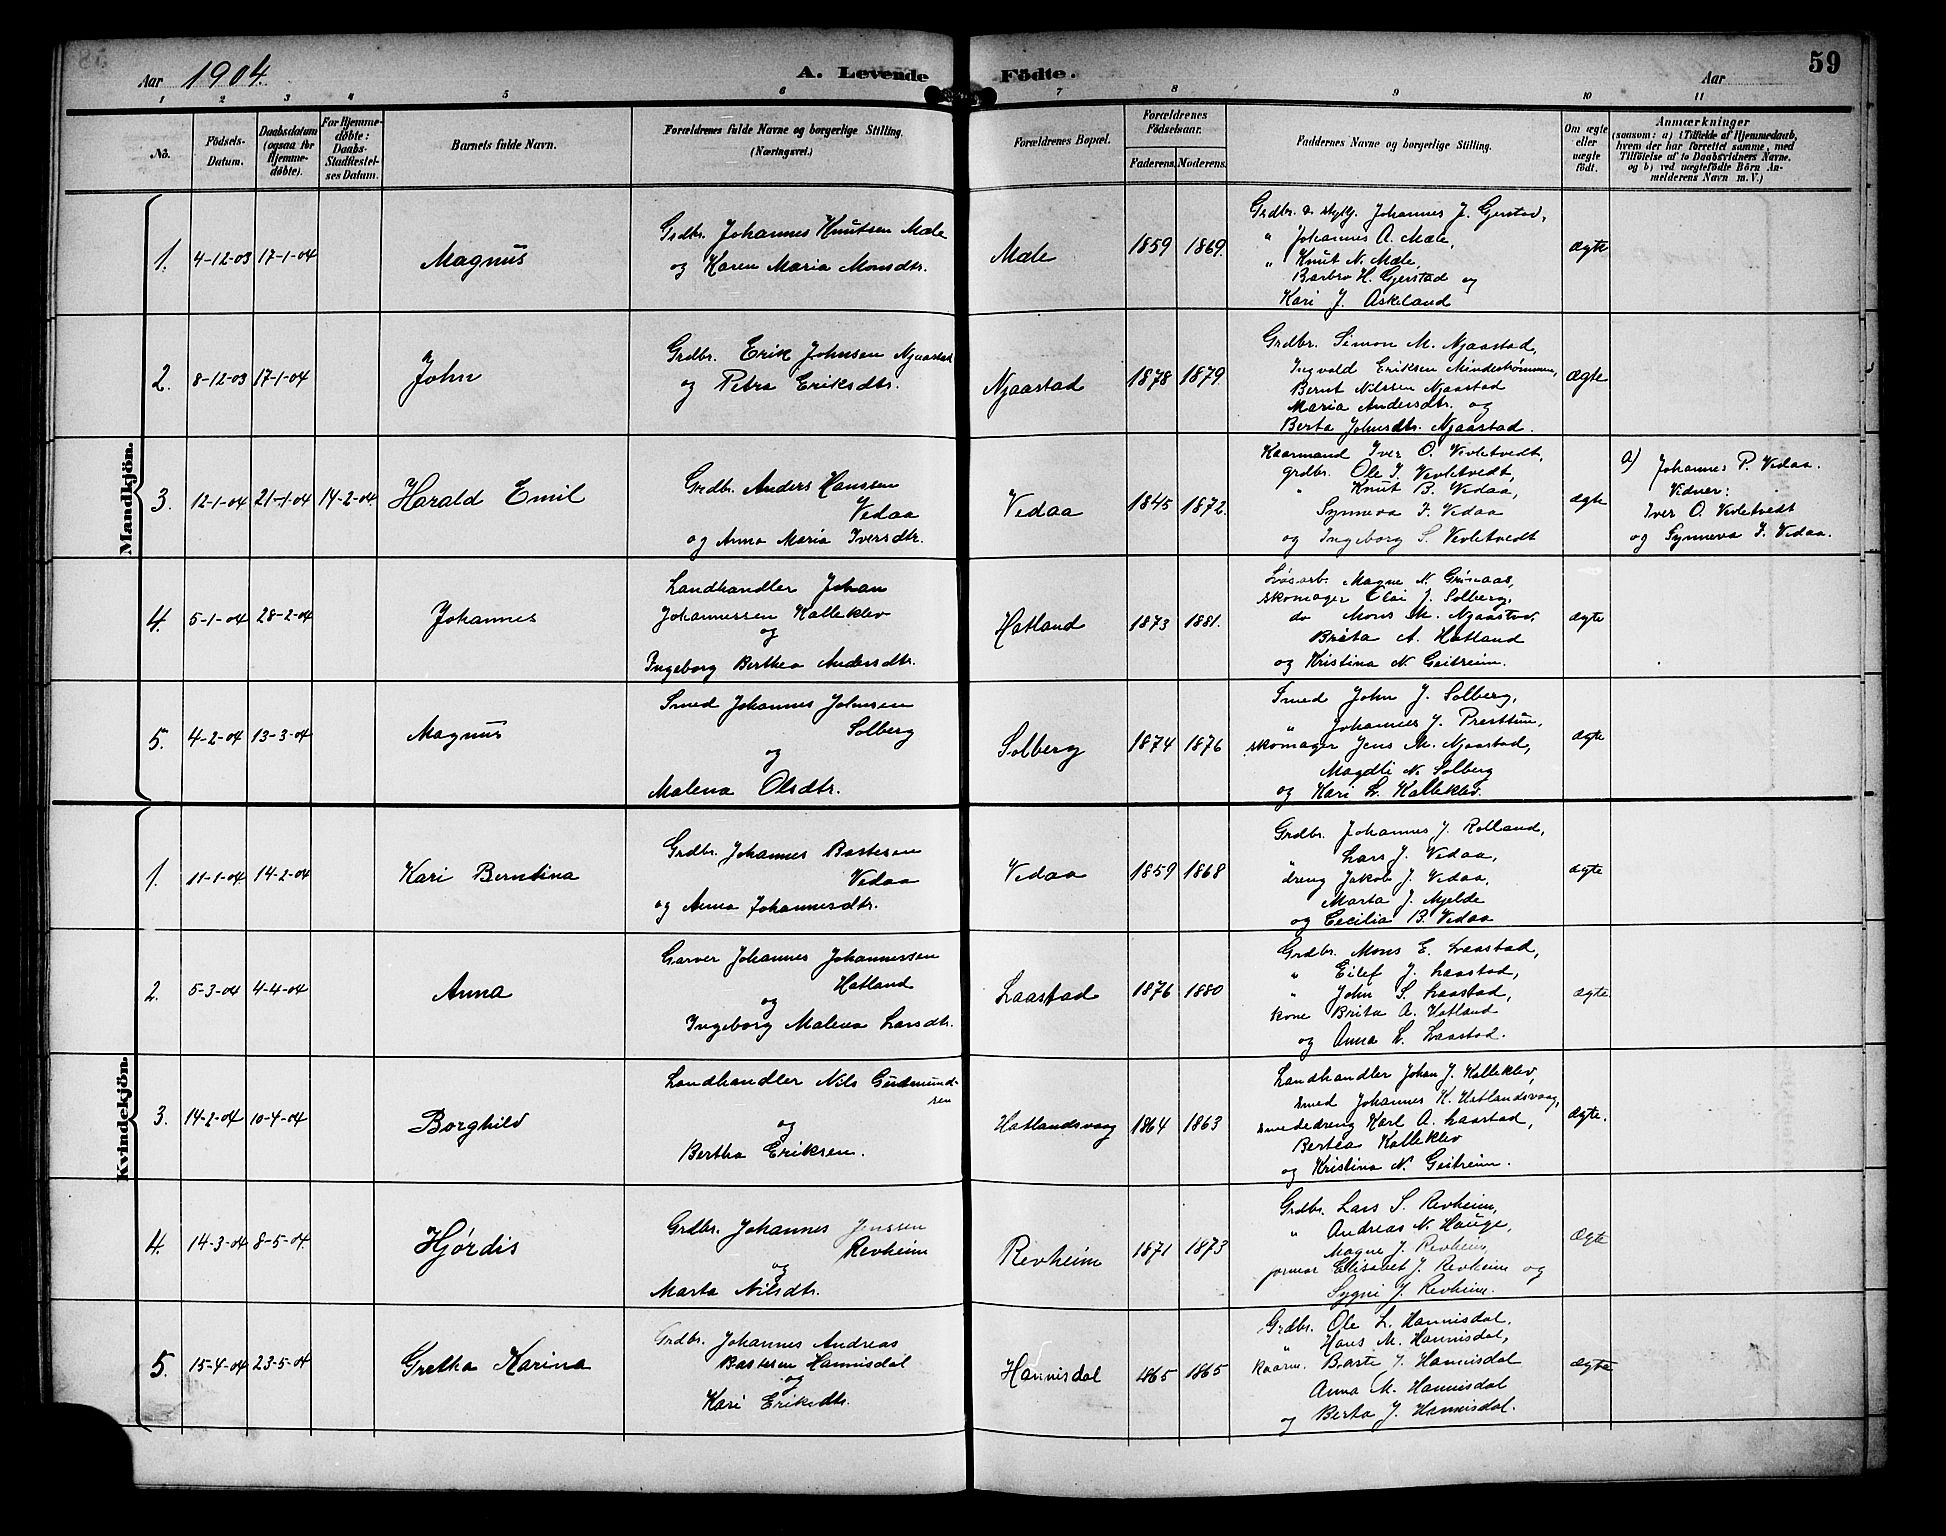 Aar 1904. A. Levende Födte. Aar 59
1 2 3 4 5 6 7 8 9 10 11
No. Födsels-Datum. Daabsdatum (ogsaa for Hjemme-döbte). For Hjemme-döbte: Daabs-Stadfæstel-ses Datum. Barnets fulde Navn. Forældrenes fulde Navne og borgerlige Stilling. (Næringsvei.) Forældrenes Bopæl. Forældrenes Födselsaar. Faderens. Moderens. Faddernes Navne og borgerlige Stilling. Om ægte eller uægte födt. Anmærkninger (saasom: a) i Tilfælde af Hjemmedaab, hvem der har forrettet samme, med Tilföielse af to Daabsvidners Navne, og b) ved uægtefödte Börn An-melderens Navn m. V.)
Mandkjön.
1. 4-12-03 17-1-04 Magnus
Grdbr. Johannes Knutsen Mæle
og Karen Maria Monsdtr.
Mæle 1859 1869.
Grdbr. & skyllg. Johannes J. Gjerstad,
" Johannes A. Mæle,
" Knut N. Mæle,
Barbro H. Gjerstad og
Kari J. Askeland
ægte
2. 8-12-03 17-1-04 John
Grdbr. Erik Johnsen Njaastad
og Petra Eriksdtr.
Njaastad 1878 1879.
Grdbr. Simon M. Njaastad,
Ingvald Eriksen
Bernt Nilssen Njaastad
Maria Andersdtr. og
Berta Johnsdtr. Njaastad.
ægte
3. 12-1-04 21-1-04 14-2-04. Harald Emil
Grdb. Anders Hanssen
Vedaa
og Anna Maria Iversdtr.
Vedaa 1845 1872.
Kaarmand Iver O. Vevletvedt,
grdbr. Ole I. Vevletvedt,
" Knut B. Vedaa,
Synneva I. Vedaa
og Ingeborg S. Vevletvedt
ægte
a) Johannes P. Vedaa.
Vidner:
Iver O. Vevletvedt
og Synneva I. Vedaa.
4. 5-1-04 28-2-04 Johannes
Landhandler Johan
Johannessen Kalleklev
og
Ingeborg Berthea Andersdtr.
Hatland 1873 1881.
Løsarb. Magne N. Grinaas,
skomager Elai J. Solberg,
do Mons M. Njaastad,
Brita A. Hatland
og Kristina N. Geitreim.
ægte
5. 4-2-04 13-3-04 Magnus
Smed Johannes Johnsen
Solberg
og
Malena Olsdtr.
Solberg 1874 1876
Smed John J. Solberg,
" Johannes J. Presttun,
skomager Jens M. Njaastad,
Magdli N. Solberg
og Kari L. Kalleklev.
ægte
Kvindekjön.
1. 11-1-04 14-2-04 Kari Berntina
Grdbr. Johannes Bastesen
Vedaa
og Anna Johannesdtr.
Vedaa 1859 1868
Grdbr. Johannes J. Rolland,
" Lars J. Vedaa,
dreng Jakob J. Vedaa,
Marta J. Mjelde
og Cecilia B. Vedaa
ægte
2. 5-3-04 4-4-04 Anna
Garver Johannes Johannessen
Hatland
og
Ingeborg Malena Larsdtr.
Laastad 1876 1880
Grdbr. Mons E. Laastad,
" Eilef J. Laastad,
" John S. Laastad,
kone Brita A. Hatland
og Anna L. Laastad.
ægte
3. 14-2-04 10-4-04 Borghild
Landhandler Nils Gudmund-
sen
og
Bertha Eriksen.
Hatlandsvaag 1864 1863
Landhandler Johan J. Kalleklev,
smed Johannes K. Hatlandsvaag,
smededreng Karl A. Laastad,
Bertea Kalleklev
og Kristina N. Geitreim.
ægte.
4. 14-3-04 8-5-04. Hjørdis
Grdbr. Johannes Jenssen
Revheim
og
Marta Nilsdtr.
Revheim 1871 1873
Grdbr. Lars S. Revheim,
" Andreas N. Hauge,
Magne J. Revheim,
Elisabet J. Revheim og
Sygni J. Revheim.
ægte
5. 15-4-04 23-5-04 Gretha Karina
Grdbr. Johannes Andreas
Bastesen Hannisdal
og
Kari Eriksdtr.
Hannisdal 1865 1865
Grdbr. Ole L. Hannisdal,
" Hans M. Hannisdal,
kaarm. Baste J. Hannisdal
Anna M. Hannisdal
og Berta J. Hannisdal.
ægte